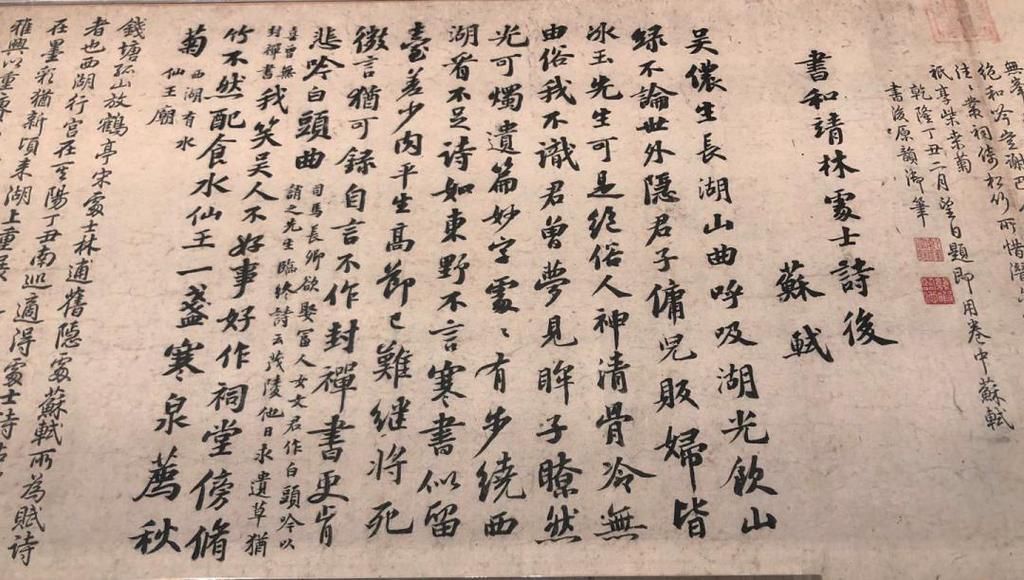 絶和吟堂謝巴人
往〻叢祠倚松竹所惜潛
祇享柴桑菊
乾隆丁丑二月望日題即用卷中蘇軾
書後原韻御筆
書和靖林處士詩後
蘇軾
吳儂生長湖山曲呼吸湖光飲山
綠不論世外隱君子傭兒販婦皆
冰玉先生可是絕俗人神清骨冷無
由俗我不識君曾夢見眸子瞭然
光可燭遺篇妙字處〻有步繞西
湖看不足詩如東野不言寒書似留
臺差少肉平生高節已難繼將死
微言猶可錄自言不作封禪書更肯
悲吟白頭曲
司馬長卿欲娶富人女文君作白頭吟以
誚之先生臨終詩云茂陵他日求遺草猶
喜曾無
封禪書
我笑吳人不好事好作祠堂傍脩
竹不然配食水仙王一盞寒泉薦秋
菊
西湖有水
仙王廟
錢塘孤山放鶴亭宋處士林逋舊隱處蘇軾所為賦詩
者也西湖行宮在 陽丁丑南巡適得處士詩
在墨彩猶新頃来湖上重展
雅興以重